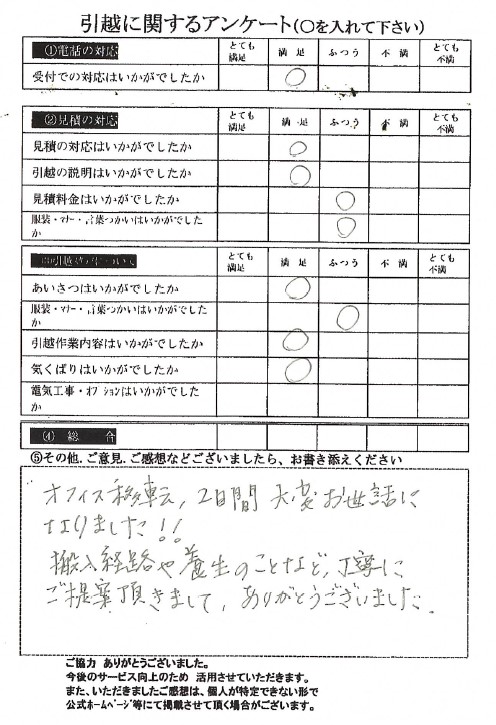 引越に関するアンケート(〇を入れて下さい)
①電話の対応 とても満足 満足 ふつう 不満 とても不満
受付での対応はいかがでしたか 〇
②見積の対応 とても満足 満足 ふつう 不満 とても不満
見積の対応はいかがでしたか 〇
引越の説明はいかがでしたか 〇
見積料金はいかがでしたか 〇
服装・マナー・言葉つかいはいかがでしたか 〇
とても満足 満足 ふつう 不満 とても不満
あいさつはいかがでしたか 〇
服装・マナー・言葉つかいはいかがでしたか 〇
引越作業内容はいかがでしたか 〇
気くばりはいかがでしたか 〇
電気工事・オプションはいかがでしたか
④ 総 合
⑤その他.ご意見.ご感想などございましたら、お書き添えください
オフィス移転, 2日間 大変お世話に
なりました!!
搬入経路や養生のことなど, 丁寧に
ご提案頂きまして, ありがとうございました.
ご協力 ありがとうございました。
今後のサービス向上のため 活用させていただきます。
また、いただきましたご感想は、個人が特定できない形で
公式ホームページ等にて掲載させて頂く場合がございます。